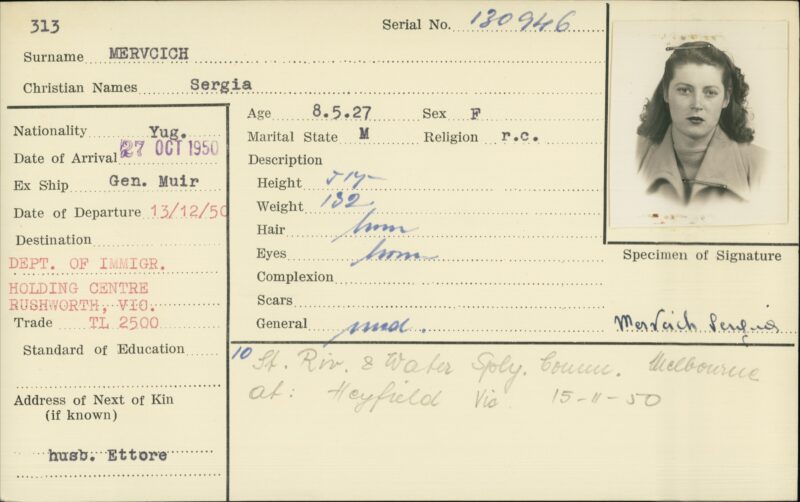 313
Serial No. 130946
Surname MERVCICH
Christian Names Sergia
Nationality Yug.
Date of Arrival 27 OCT 1950
Ex Ship Gen. Muir
Date of Departure 13/12/50
Destination
DEPT. OF IMMIGR.
HOLDING CENTRE
RUSHWORTH, VIC.
Trade TL 2500
Standard of Education
Address of Next of Kin
(if known)
husb. Ettore
Age 8.5.27 Sex F
Marital State M Religion r.c.
Description
Height
Weight 132
Hair
Eyes
Complexion
Scars
General med.
Specimen of Signature
10 St. Riv. & Water Sply. Comm. Melbourne
at: Heyfield Vic 15-11-50